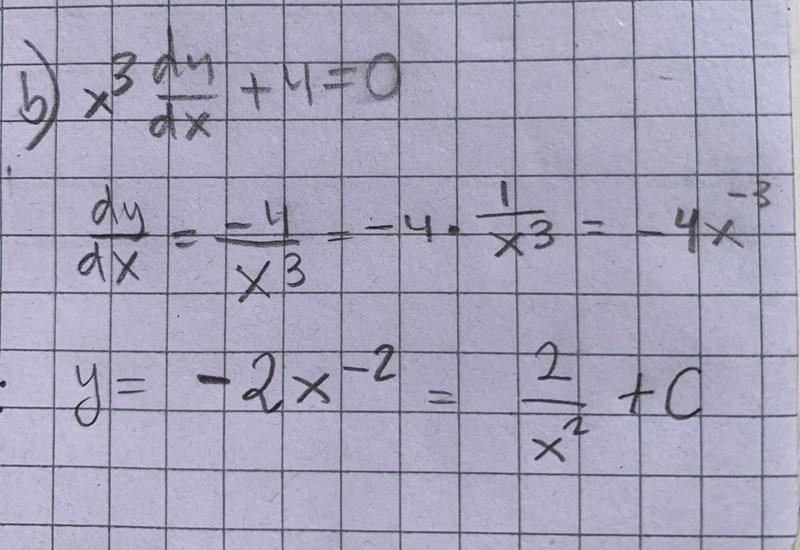 b) x³ dy/dx + 4 = 0
dy/dx = -4/x³ = -4 · 1/x³ = -4x⁻³
y = -2x⁻² = 2/x² + C